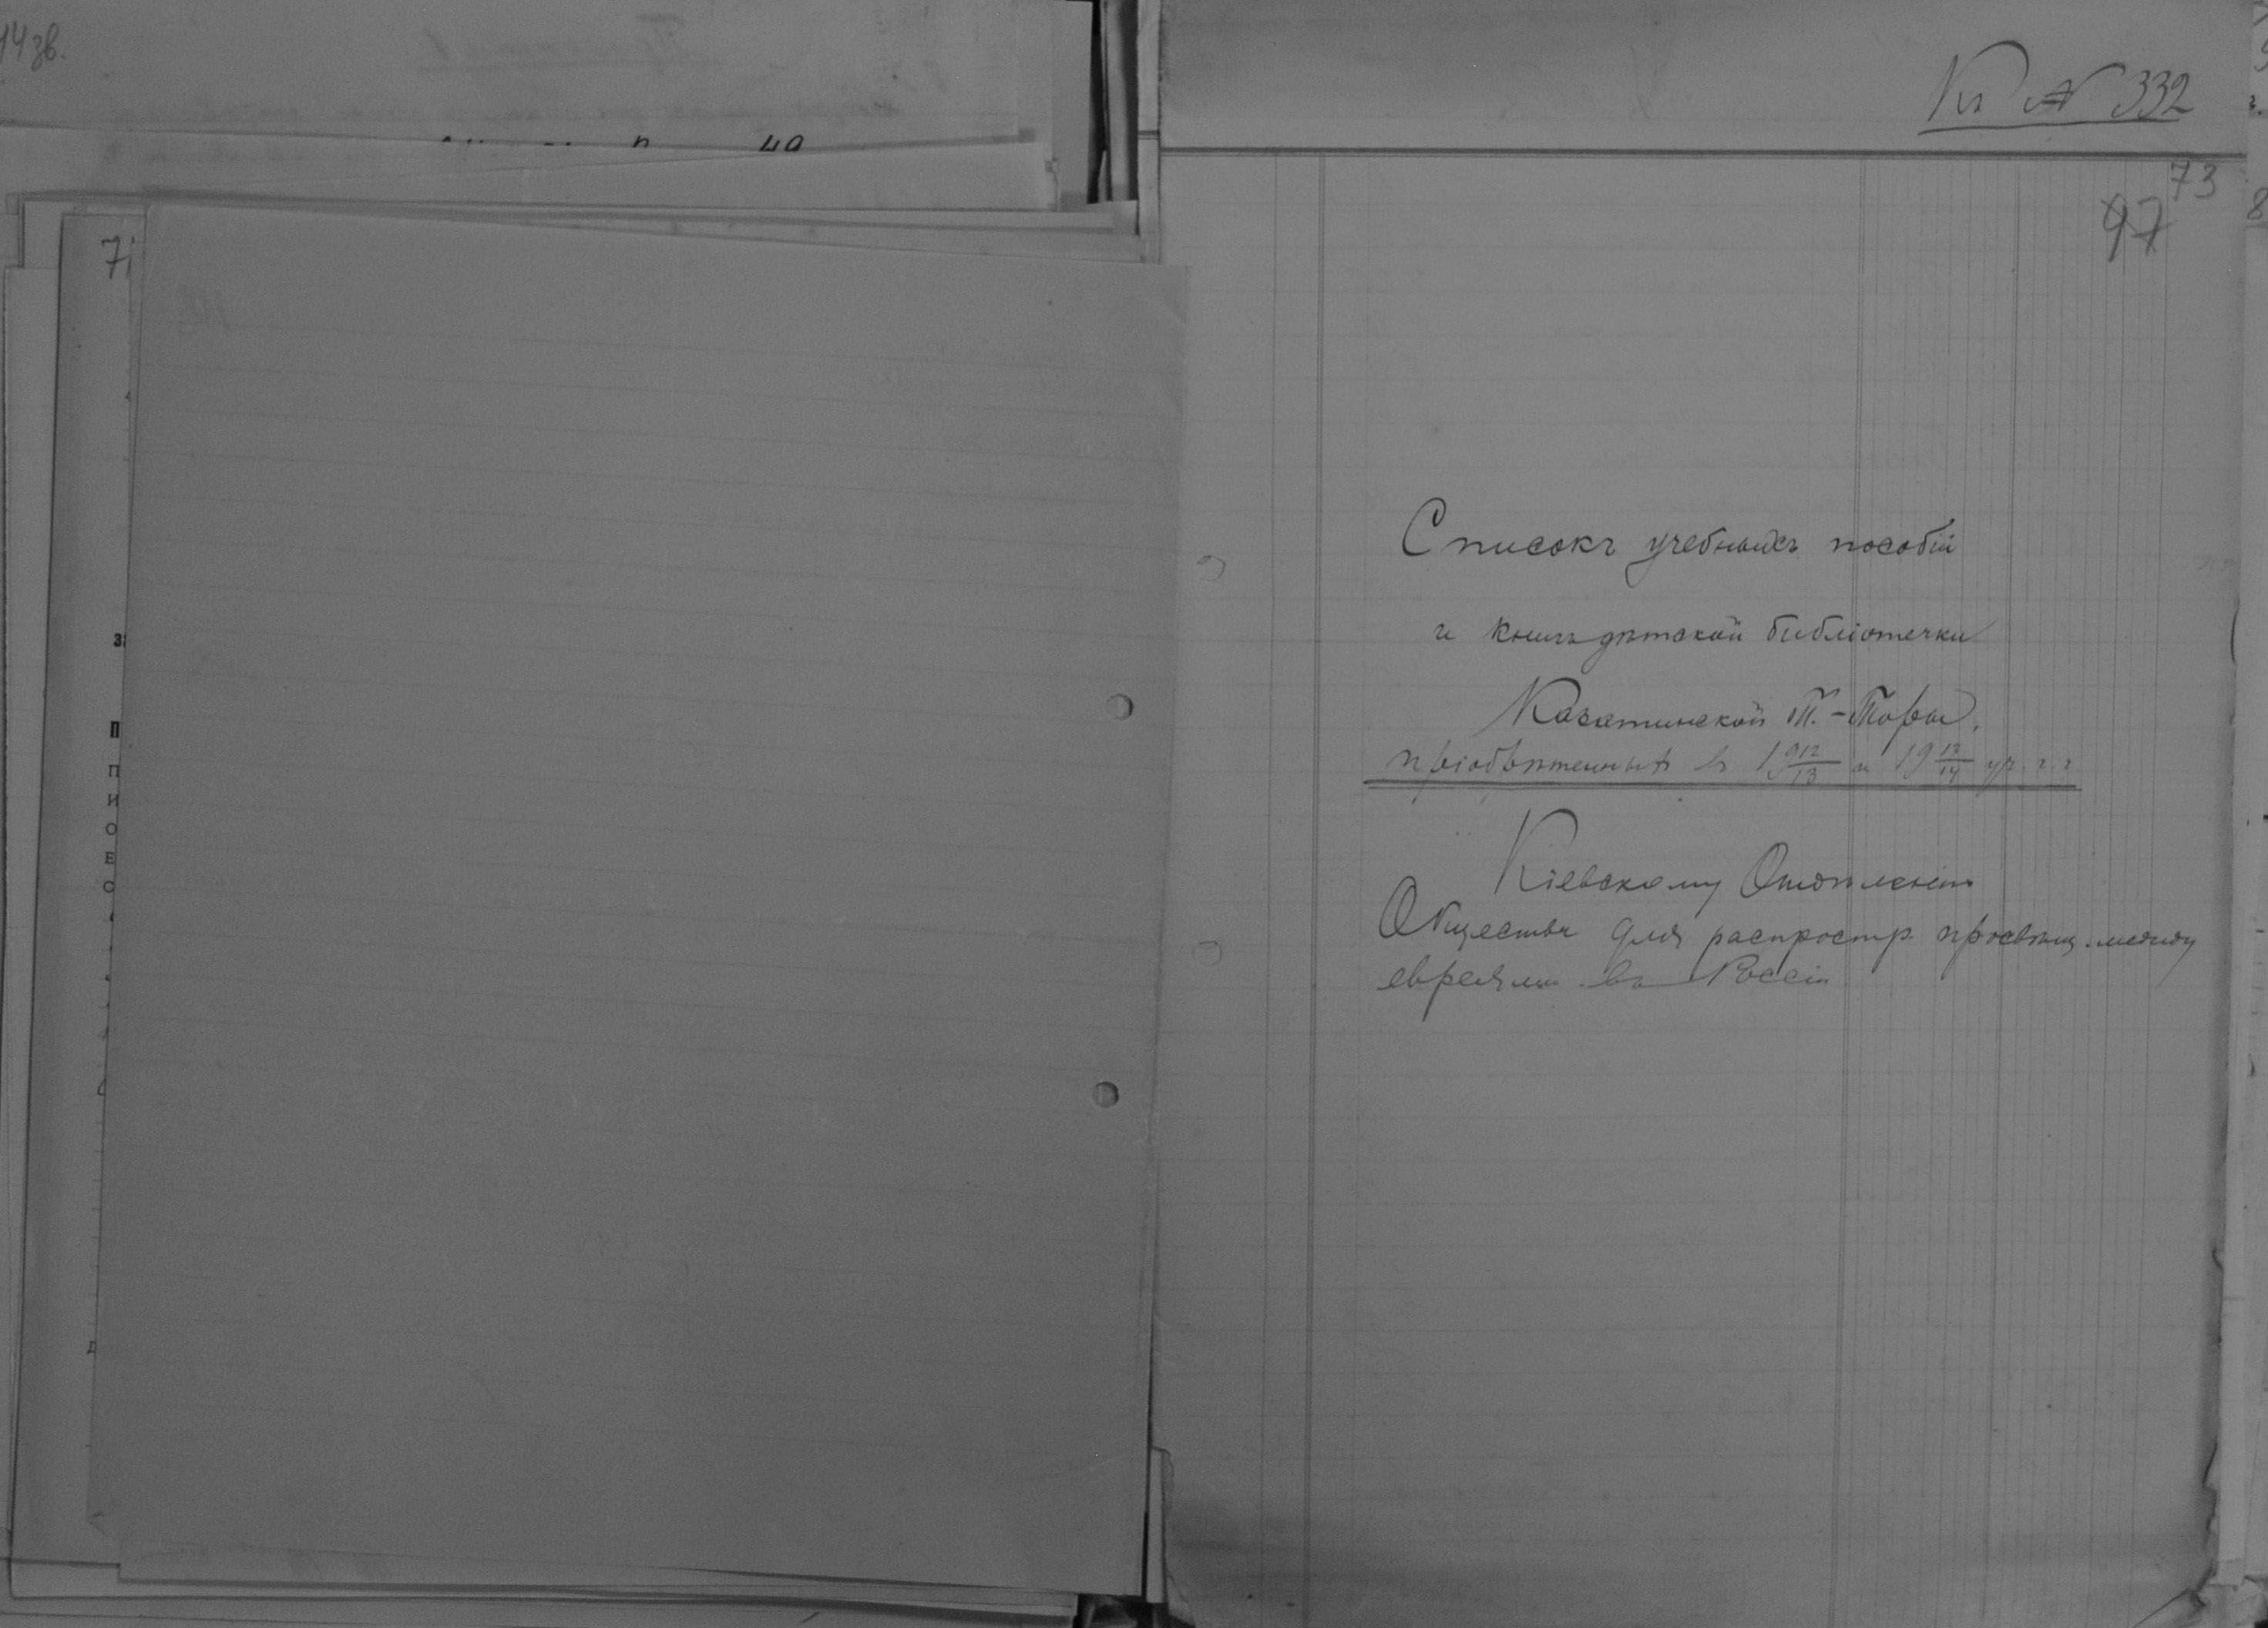 14зв.
Къ № 332
73
97
71
Списокъ учебныхъ пособій
и книгъ дѣтской библіотечки
Казатинской Т.-Торы,
пріобрѣтенныхъ въ 1912/13 и 1913/14 уч. г. г.
Кіевскому Отдѣленію
Общества для распростр. просвѣщ. между
евреями въ Россіи